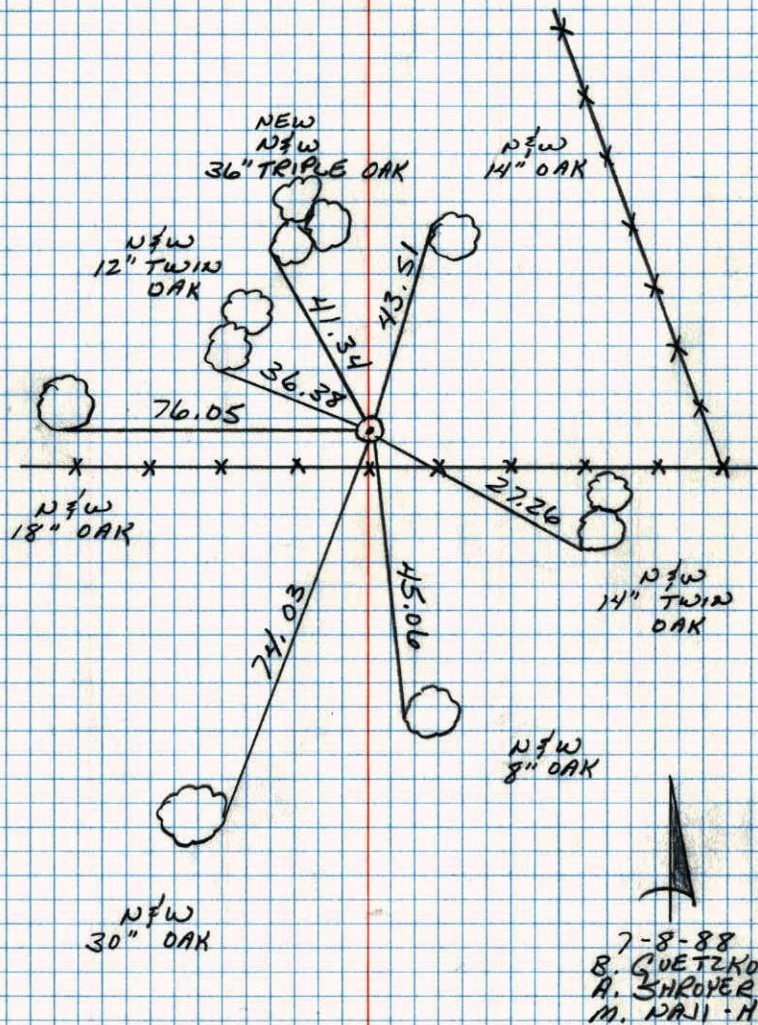 NEW
N&W
36" TRIPLE OAK
N&W
14" OAK
N&W
12" TWIN
OAK
43.51
41.34
36.38
76.05
N&W
18" OAK
27.26
N&W
14" TWIN
OAK
45.06
74.03
N&W
8" OAK
N&W
30" OAK
7-8-88
B. GUETZKO
A. SHROYER
M. NAJI-H